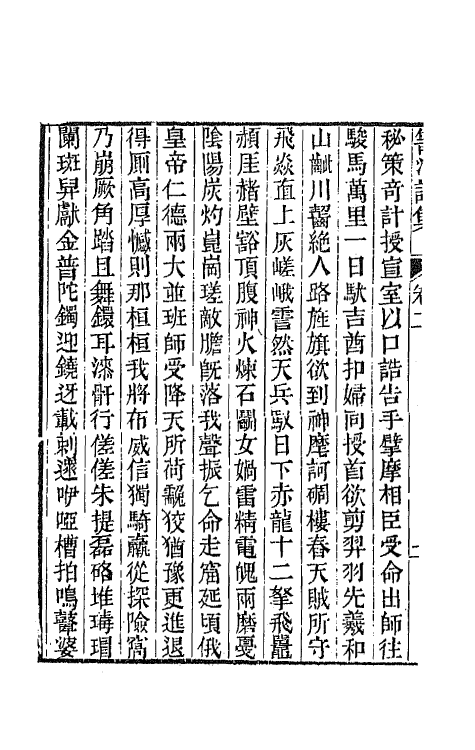 秘策奇計授宣室以口誥告手擘摩相臣受命出師往
駿馬萬里一日馱吉酋扣婦同授首欲剪羿羽先羲和
山齜川齾絶人路旌旗欲到神麾訶碉樓舂天賊所守
飛焱直上灰嵯峨霅然天兵馭日下赤龍十二拏飛鼉
頳厓赭壁豁頂腹神火煉石鬬女媧雷精電魄兩磨戛
陰陽炭灼崑崗瑳敵膽旣落我聲振乞命走窩延頃俄
皇帝仁德兩大並班師受降天所荷覶狡猶豫更進退
得厠高厚憾則那桓桓我將布威信獨騎羸從探險窩
乃崩厥角踏且舞鐶耳漆骭行傞傞朱提磊硌堆瑇瑁
闌斑舁獻金普陀鐲迎鐃迓戴刺邐咿啞槽拍鳴鼞婆
卷二